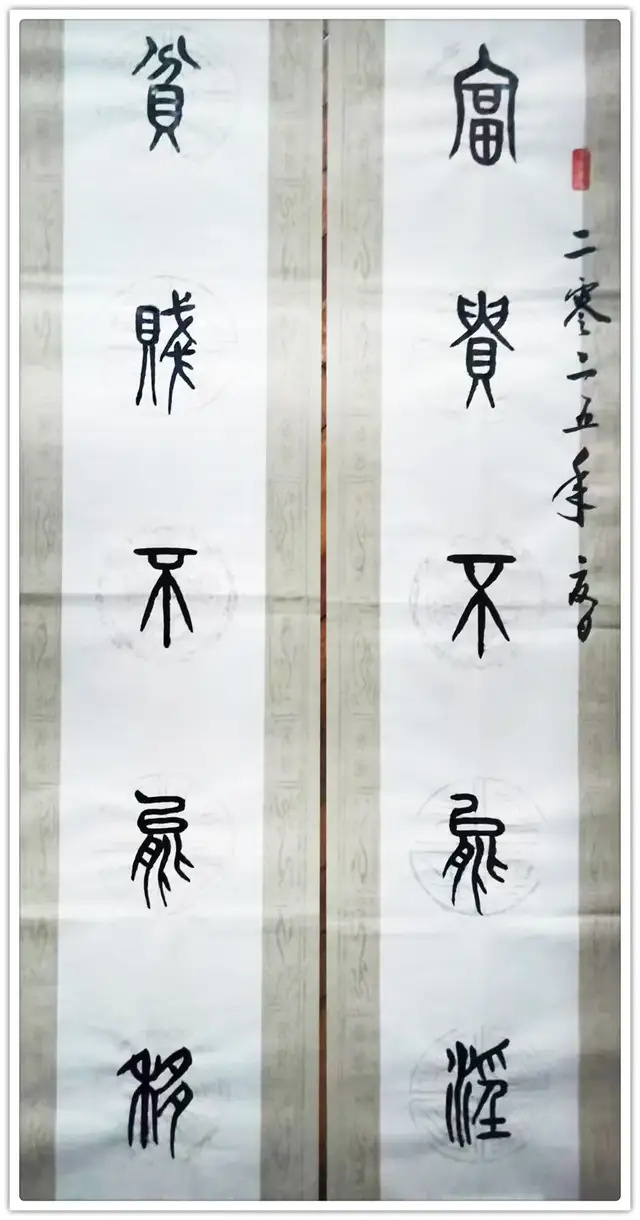 二零二五年夏日
富貴不能淫
貧賤不能移